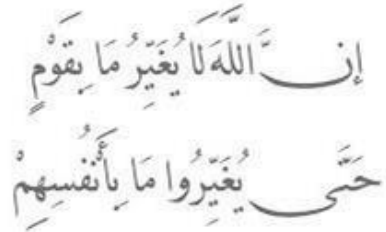 إِنَّ اللَّهَ لَا يُغَيِّرُ مَا بِقَوْمٍ
حَتَّى يُغَيِّرُوا مَا بِأَنْفُسِهِمْ